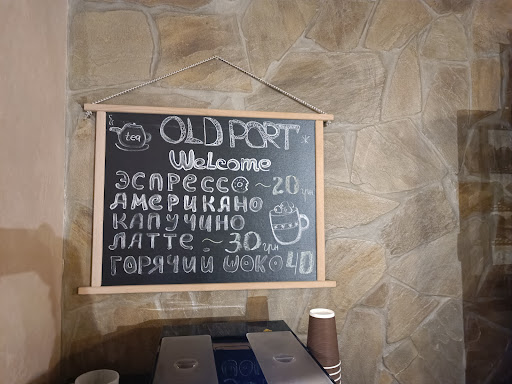 tea
OLD PORT
Welcome
ЭСПРЕССО ~20 грн
АМЕРИКАНО
КАПУЧИНО
ЛАТТЕ ~ 30 грн
ГОРЯЧИЙ ШОКО 40